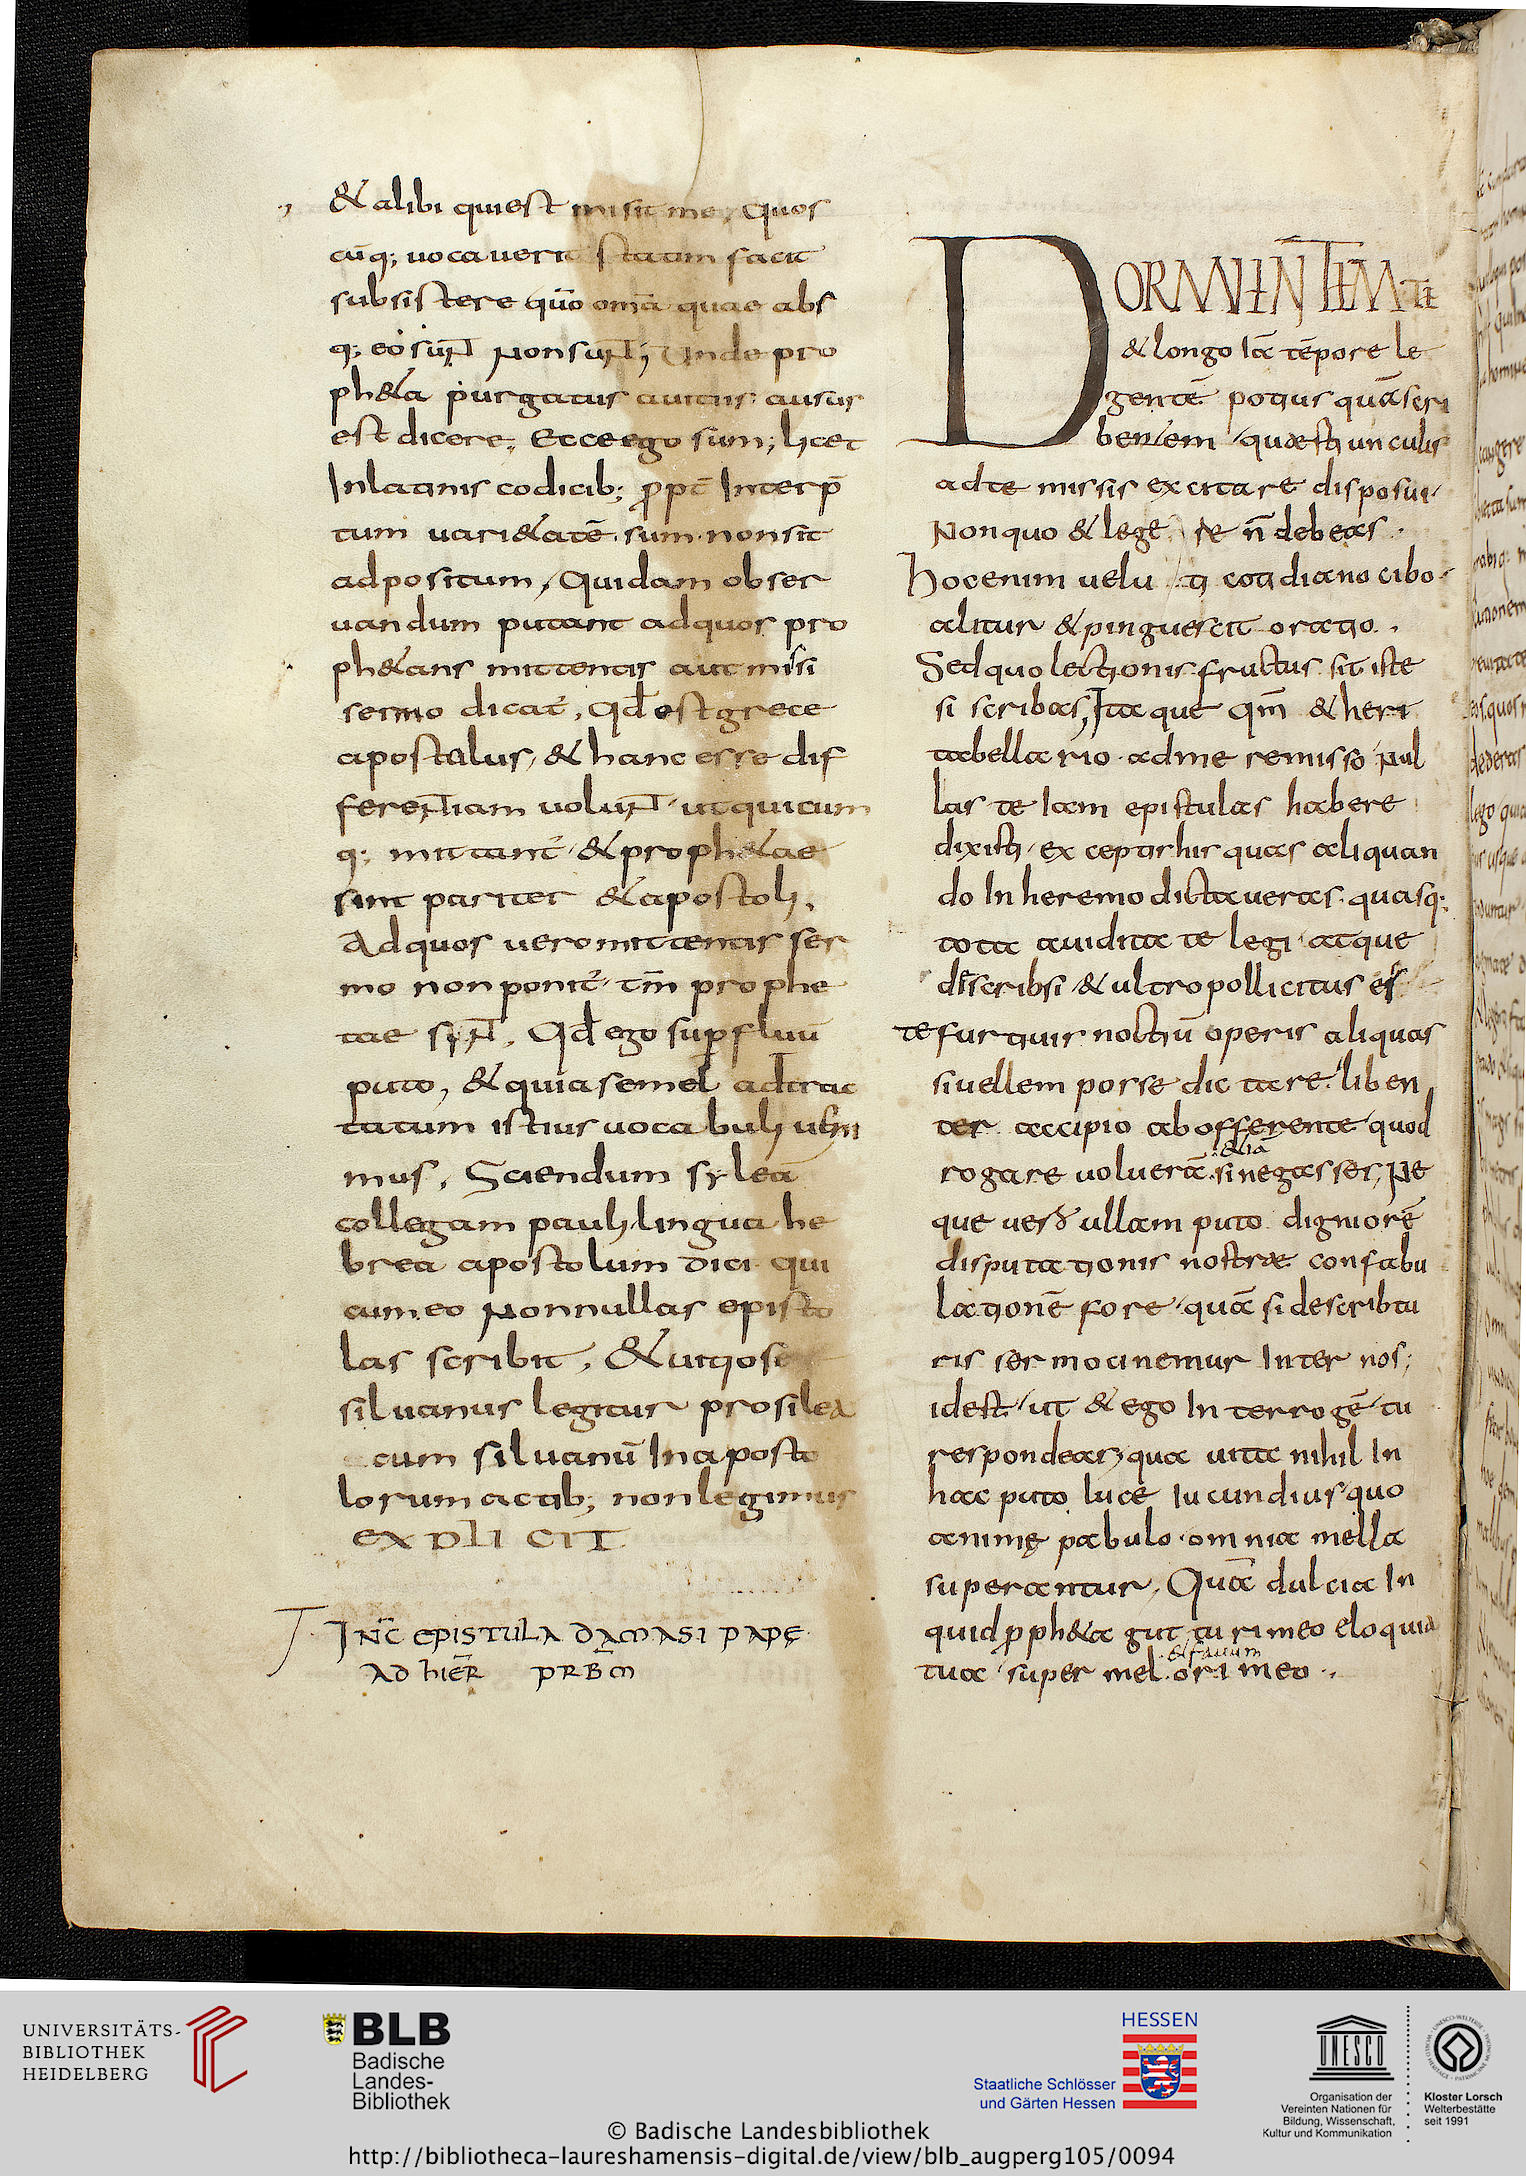 & alibi qui est misit me, Quos
cūq; vocaverit statim facit
subsistere quō om̄a quae abs
q; eo sunt Non sunt; Unde pro
ph&a purgatus avitiis ausus
est dicere; Ecce ego sum; licet
In latinis codicib; ꝓpt̄ Interp̄
tum vari&atē sum non sit
adpositum, Quidam obser
vandum putant ad quos pro
ph&ans mittentis aut missi
sermo dicat̄, Qd̄ est grece
apostolus, & hanc esse dif
ferentiam volunt ut quicum
q; mittant̄ & proph&ae
sint pariter & apostoli,
Ad quos vero mittentis ser
mo non ponit̄ tm̄ prophe
tae sunt, Qd̄ ego suꝑfluū
puto, & quia semel ad trac
tatum istius vocabuli
mus, Sciendum syleā
collegam pauli lingua he
brea apostolum dici qui
cum eo Nonnullas episto
las scribit, & vitiose
silvanus legitur pro silea
cum silvanū In aposto
lorum actib; non legimus
explicit
INC̄ EPISTULA DAMASI PAPĘ
AD HIER̄ PRB̄M
DORMIENTEM TE
& longo Iā tēpore le
gentē potius quā scri
bentem quaestiunculis
ad te missis excitare disposui
Non quo & legere n̄ debeas.
hoc enim velu ti cotidiano cibo
alitur & pinguescit oratio.
Sed quo lectionis fructus sit iste
si scribas, Itaque qm̄ & heri
tabellario ad me remisso Nul
las te Iam epistulas habere
dixisti exceptis his quas aliquan
do In heremo dictaveras quasq;
tota avidita te legi atque
describsi & ultro pollicitus es
te furtivis noctiū operis aliquas
si vellem posse dictare. liben
ter accipio ab offerente quod
rogare volverā si negasses, Ne
&iā
que vero ullam puto digniorē
disputationis nostrae confabu
lationē fore quā si describtu
ris sermocinemur Inter nos;
id est ut & ego Interrogē tu
respondeas, qua vita nihil In
hac puto luce Iucundius quo
animę pabulo omnia mella
superantur, Quā dulcia In
quid ꝓph&a gutturi meo eloquia
tua super mel ori meo
& favum
UNIVERSITÄTS-
BIBLIOTHEK
HEIDELBERG
BLB
Badische
Landes-
Bibliothek
HESSEN
Staatliche Schlösser
und Gärten Hessen
UNESCO
Organisation der
Vereinten Nationen für
Bildung, Wissenschaft,
Kultur und Kommunikation
Kloster Lorsch
Welterbestätte
seit 1991
© Badische Landesbibliothek
http://bibliotheca-laureshamensis-digital.de/view/blb_augperg105/0094